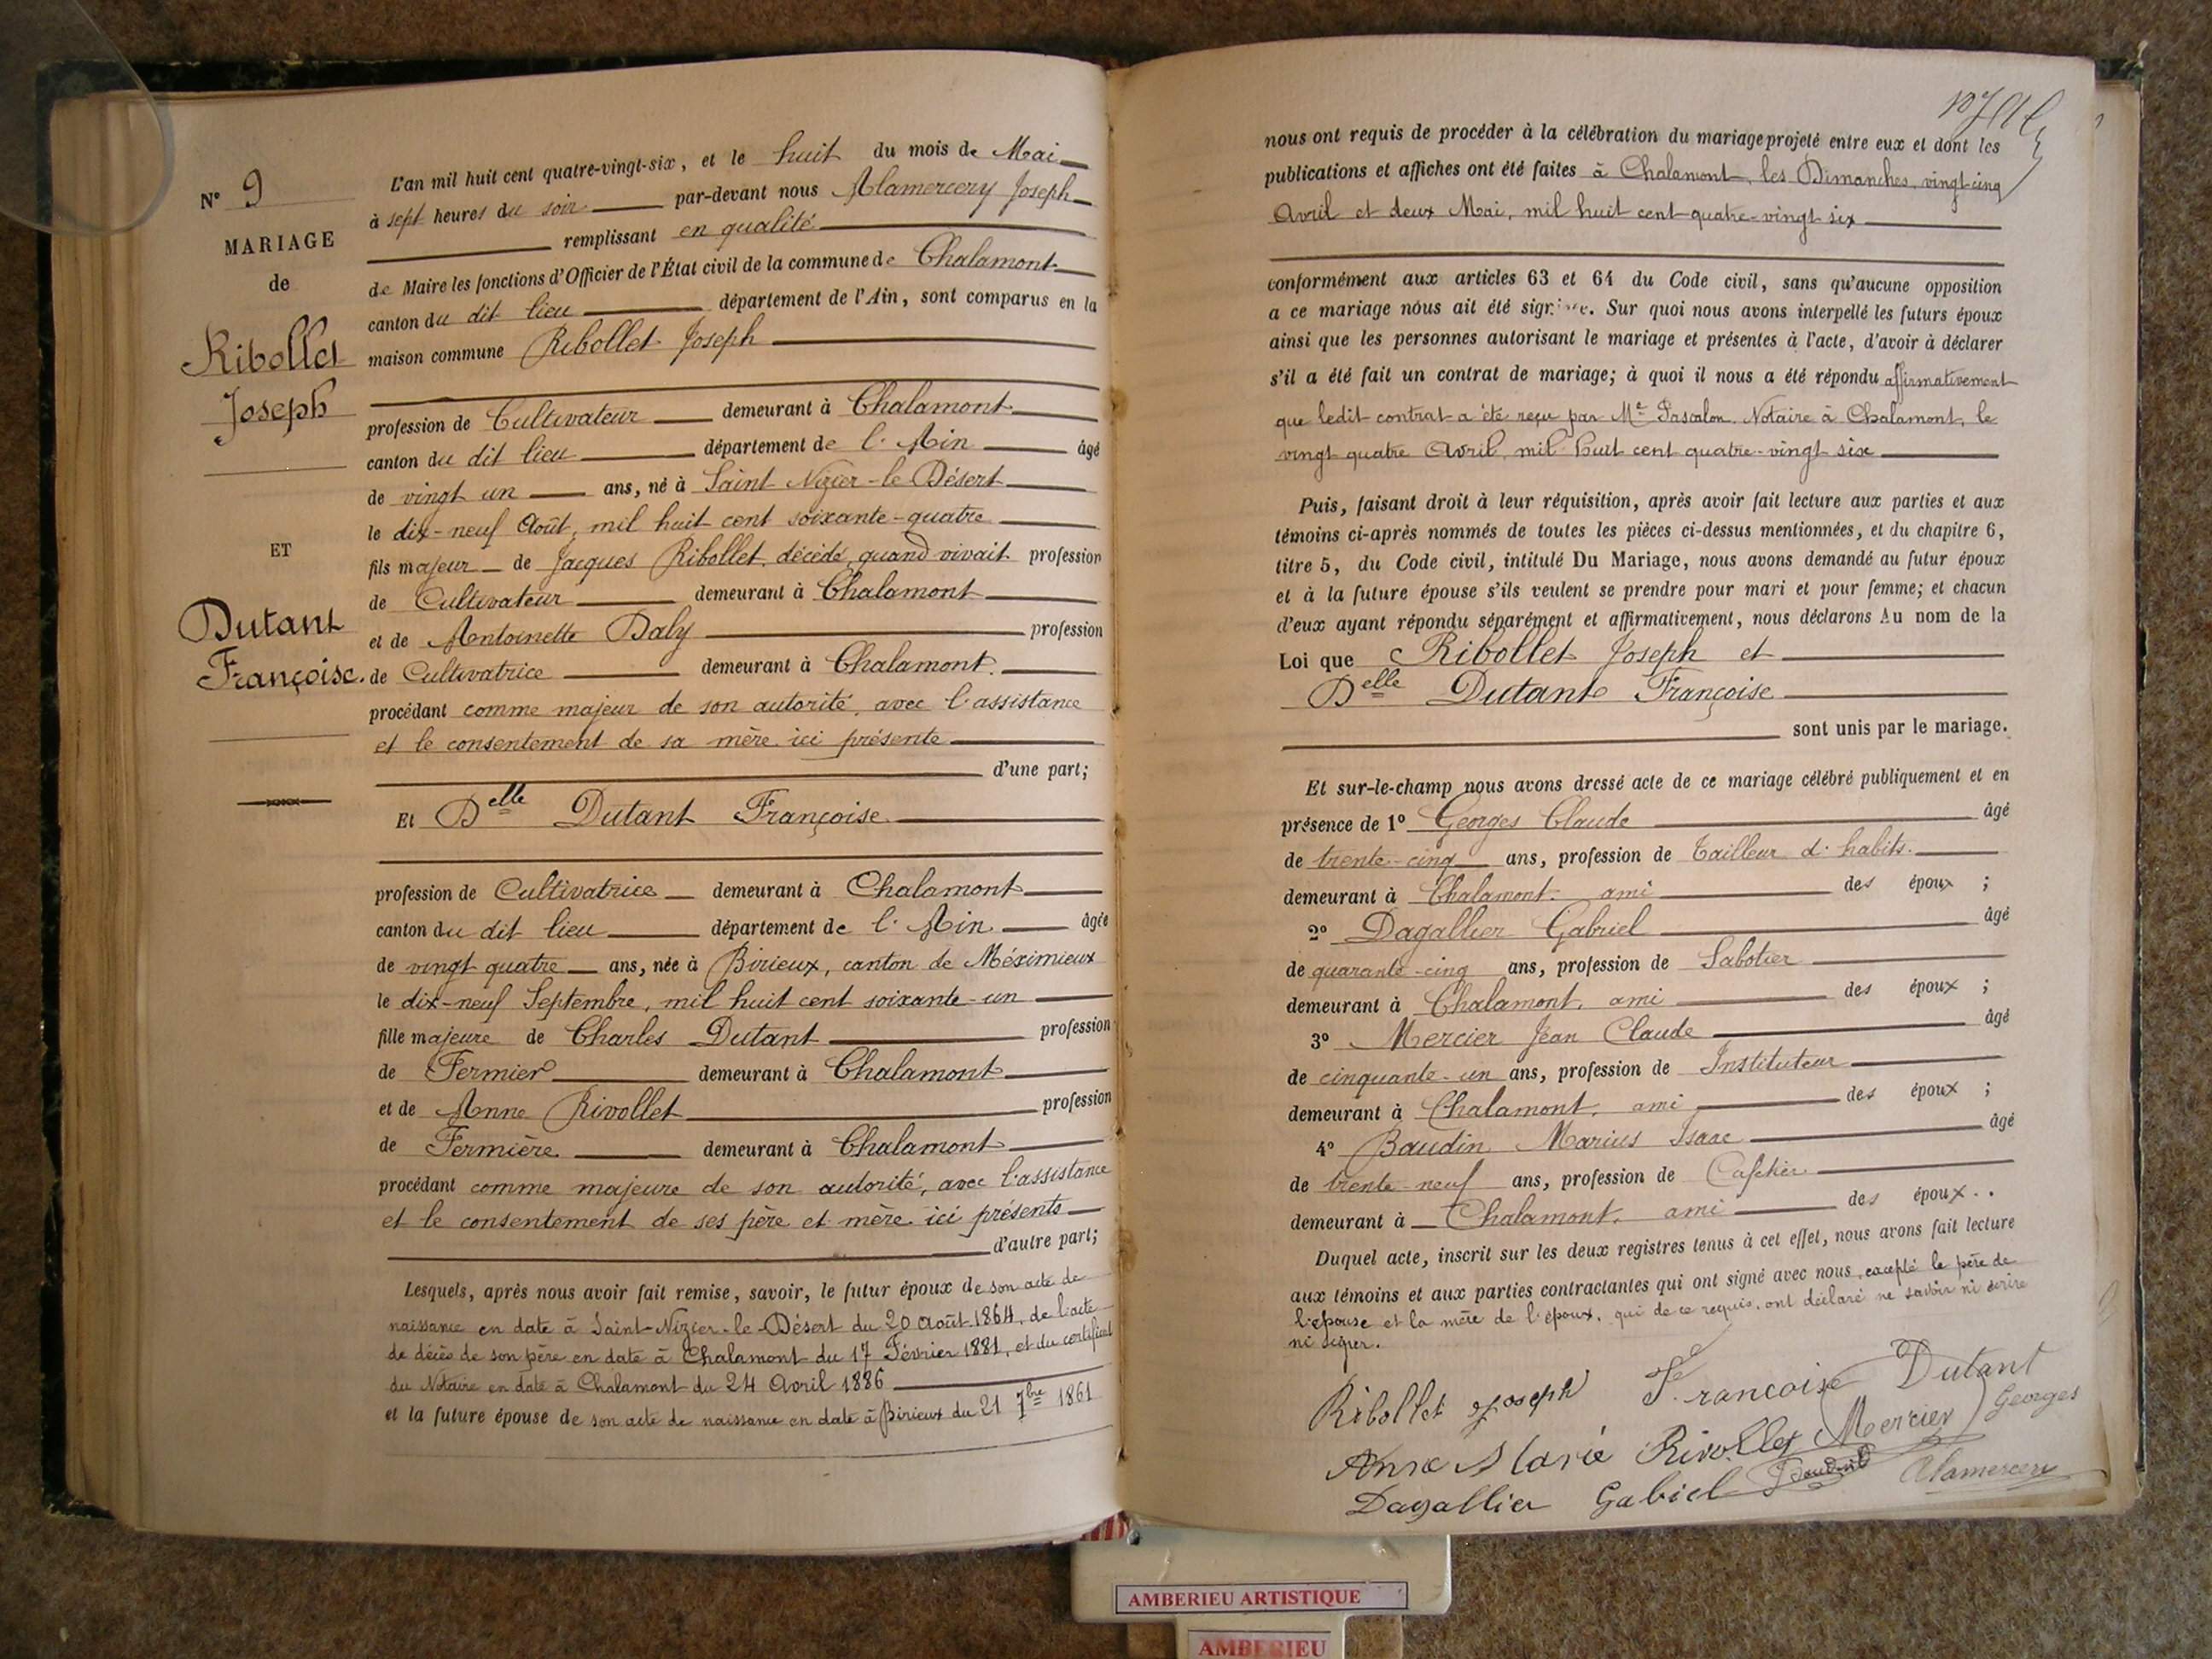 N° 9
MARIAGE
de
Ribollet
Joseph
ET
Dutant
Françoise.
L'an mil huit cent quatre-vingt-six, et le huit du mois de Mai
à sept heures du soir par-devant nous Alamercery Joseph
remplissant en qualité
de Maire les fonctions d'Officier de l'État civil de la commune de Chalamont
canton du dit lieu département de l'Ain, sont comparus en la
maison commune Ribollet Joseph
profession de Cultivateur demeurant à Chalamont
canton du dit lieu département de l'Ain âgé
de vingt un ans, né à Saint Nizier-le-Désert
le dix-neuf Août, mil huit cent soixante-quatre
fils majeur de Jacques Ribollet, décédé, quand vivait profession
de Cultivateur demeurant à Chalamont
et de Antoinette Daly profession
de Cultivatrice demeurant à Chalamont.
procédant comme majeur de son autorité, avec l'assistance
et le consentement de sa mère ici présente
d'une part;
Et Delle Dutant Françoise
profession de Cultivatrice demeurant à Chalamont
canton du dit lieu département de l'Ain âgée
de vingt quatre ans, née à Birieux, canton de Méximieux
le dix-neuf Septembre, mil huit cent soixante-un
fille majeure de Charles Dutant profession
de Fermier demeurant à Chalamont
et de Anne Rivollet profession
de Fermière demeurant à Chalamont
procédant comme majeure de son autorité, avec l'assistance
et le consentement de ses père et mère ici présents
d'autre part;
Lesquels, après nous avoir fait remise, savoir, le futur époux de son acte de
naissance en date à Saint-Nizier-le-Désert du 20 août 1864, de l'acte
de décès de son père en date à Chalamont du 17 Février 1881, et du certificat
du Notaire en date à Chalamont du 24 Avril 1886
et la future épouse de son acte de naissance en date à Birieux du 21 7bre 1861
nous ont requis de procéder à la célébration du mariage projeté entre eux et dont les
publications et affiches ont été faites à Chalamont, les Dimanches, vingt-cinq
Avril et deux Mai, mil huit cent quatre-vingt six
conformément aux articles 63 et 64 du Code civil, sans qu'aucune opposition
a ce mariage nous ait été signifiée. Sur quoi nous avons interpellé les futurs époux
ainsi que les personnes autorisant le mariage et présentes à l'acte, d'avoir à déclarer
s'il a été fait un contrat de mariage; à quoi il nous a été répondu affirmativement
que ledit contrat a été reçu par Me Pascalon Notaire à Chalamont, le
vingt quatre Avril, mil huit cent quatre-vingt six
Puis, faisant droit à leur réquisition, après avoir fait lecture aux parties et aux
témoins ci-après nommés de toutes les pièces ci-dessus mentionnées, et du chapitre 6,
titre 5, du Code civil, intitulé Du Mariage, nous avons demandé au futur époux
et à la future épouse s'ils veulent se prendre pour mari et pour femme; et chacun
d'eux ayant répondu séparément et affirmativement, nous déclarons Au nom de la
Loi que Ribollet Joseph et
Delle Dutant Françoise
sont unis par le mariage.
Et sur-le-champ nous avons dressé acte de ce mariage célébré publiquement et en
présence de 1° Georges Claude âgé
de trente-cinq ans, profession de Tailleur d'habits.
demeurant à Chalamont, ami des époux ;
2° Dagallier Gabriel âgé
de quarante-cinq ans, profession de Sabotier
demeurant à Chalamont, ami des époux ;
3° Mercier Jean Claude âgé
de cinquante-un ans, profession de Instituteur
demeurant à Chalamont, ami des époux ;
4° Baudin Marius Isaac âgé
de trente neuf ans, profession de Cafetier
demeurant à Chalamont, ami des époux..
Duquel acte, inscrit sur les deux registres tenus à cet effet, nous avons fait lecture
aux témoins et aux parties contractantes qui ont signé avec nous, excepté le père de
l'épouse et la mère de l'époux, qui de ce requis, ont déclaré ne savoir ni écrire
ni signer.
Ribollet joseph Francoise Dutant
Anne Marie Rivollet Mercier Georges
Dagallier Gabiel Baudin Alamercery
AMBERIEU ARTISTIQUE
AMBERIEU